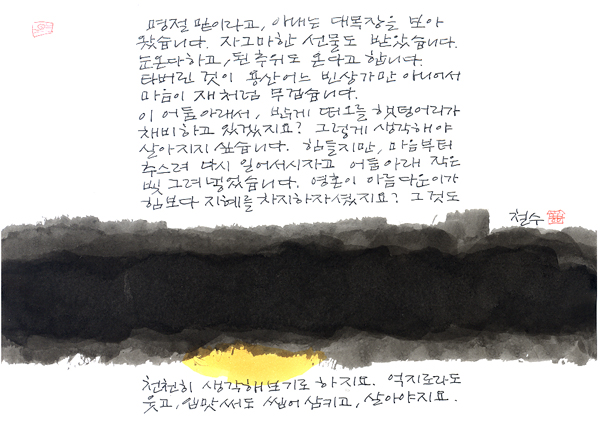 명절 밑이라고, 아내는 대목장을 보아
왔습니다. 자그마한 선물도 받았습니다.
눈온다하고, 된추위도 온다고 합니다.
타버린 것이 용산어느 빈상가만 아니어서
마음이 재처럼 무겁습니다.
이 어둠아래서, 밝게 떠오를 햇덩어리가
채비하고 있겠지요? 그렇게 생각해야
살아지지 싶습니다. 힘들지만, 마음부터
추스려 다시 일어서시자고 어둠아래 작은
빛 그려넣었습니다. 영혼이 아름다운이가
힘보다 지혜를 차지하자셨지요? 그것도
철수
천천히 생각해보기로 하지요. 억지로라도
웃고, 입맛써도 씹어삼키고, 살아야지요.